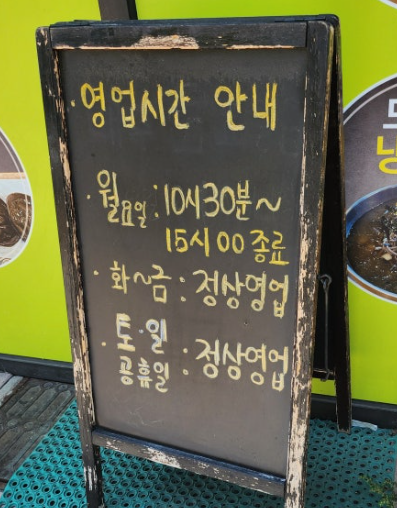 · 영업시간 안내
· 월요일 : 10시30분~
15시00종료
· 화~금 : 정상영업
· 토·일
공휴일 : 정상영업